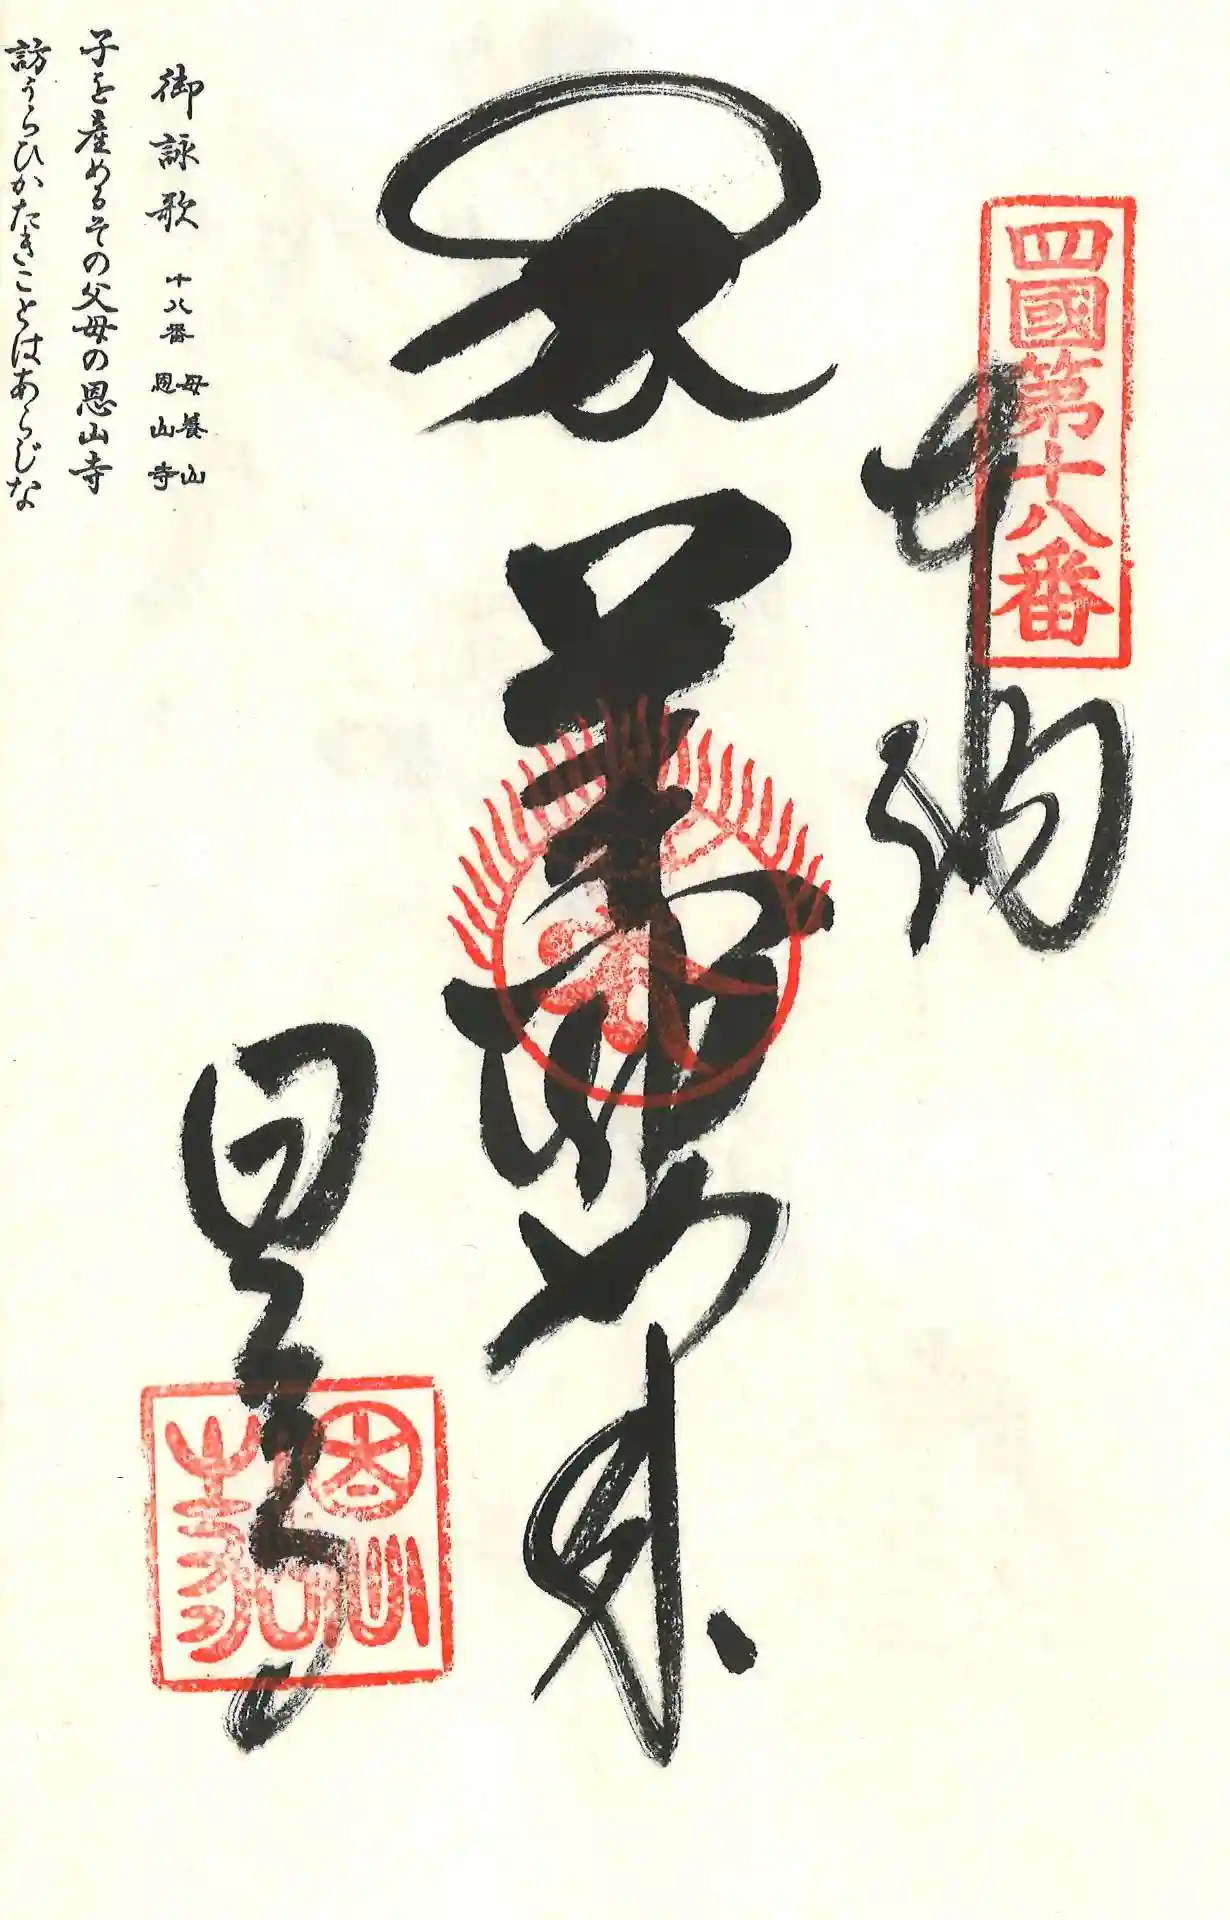 四國第十八番
奉納
薬師如来
恩山寺
御詠歌 十八番 母養山 恩山寺
子を産めるその父母の恩山寺
訪うらひかたきことはあらじな